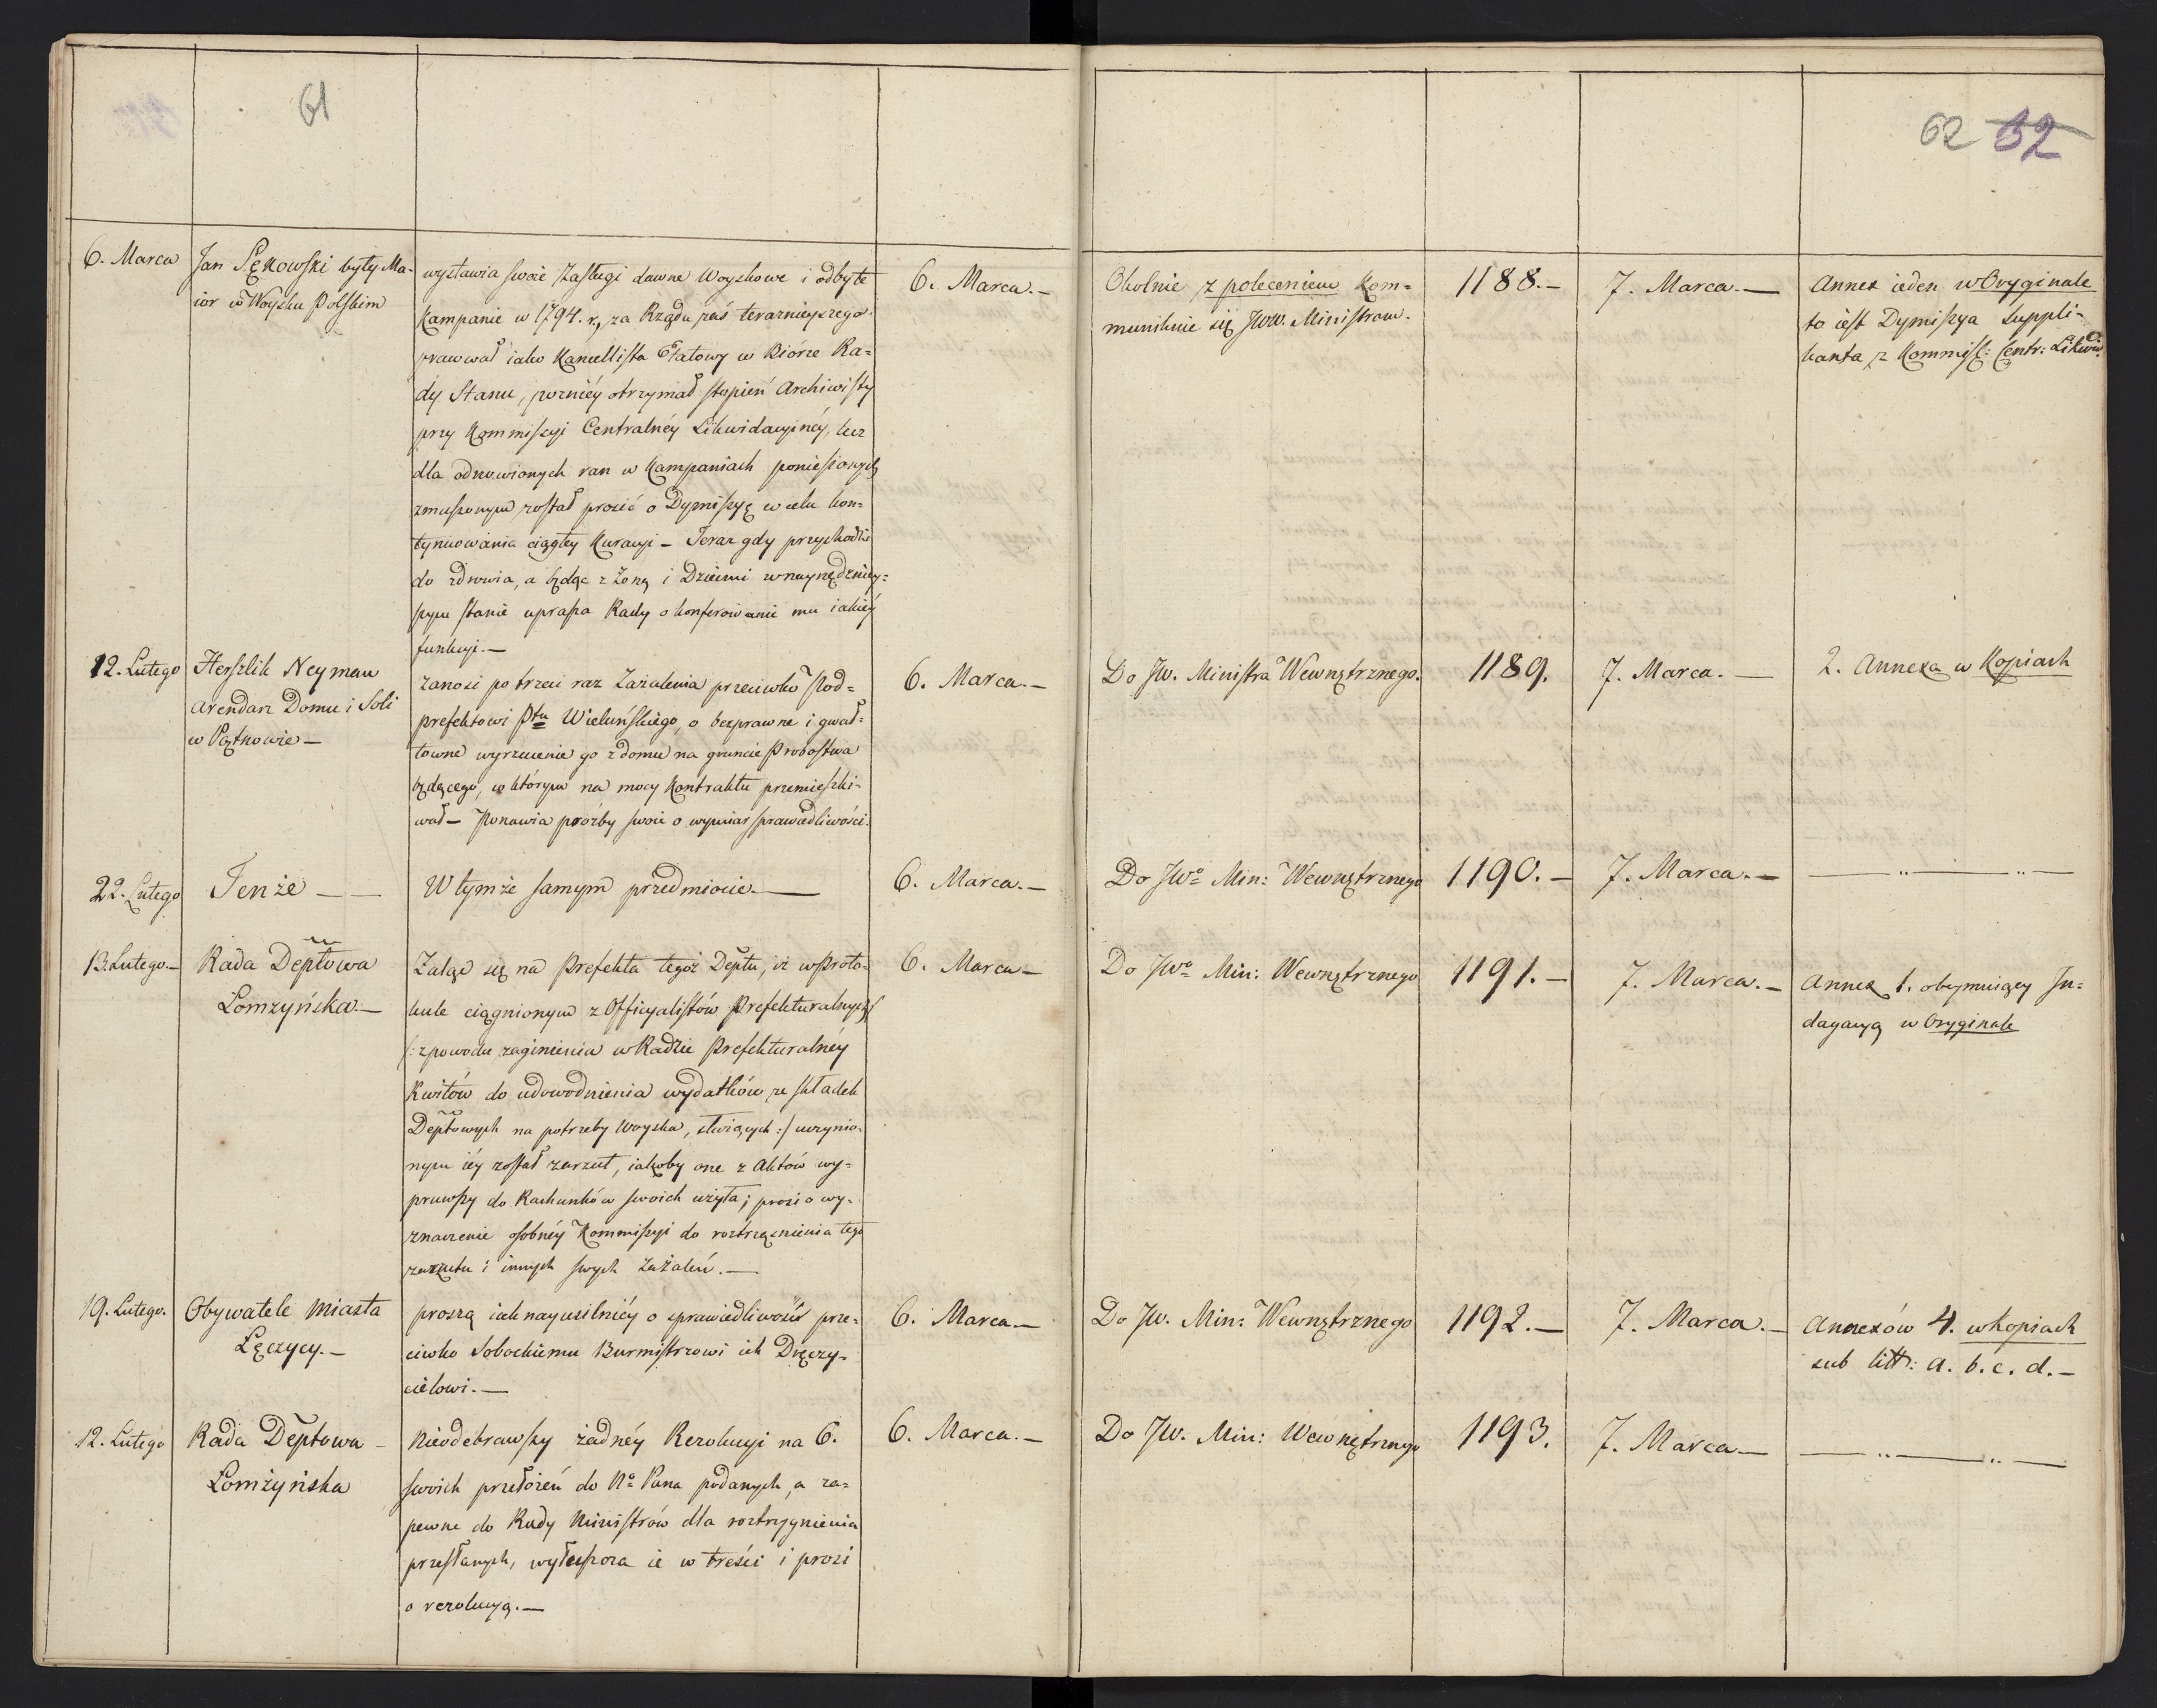 61
62 32
6. Marca
Jan Sękowski były Ma-
ior w Woysku Polskim
wystawia swoie Zasługi dawne Woyskowe i odbyte
Kampanie w 1794. r., za Rządu zaś teraznieyszego
pracował iako Kancellista Etatowy w Biórze Ra=
dy Stanu, pozniéy otrzymał stopień Archiwisty
przy Kommissyi Centralnéy Likwidacyinéy, lecz
dla odnowionych ran w Kampaniach poniesionych
zmuszonym został prosić o Dymissyę w celu kon=
tynuowania ciągłey Kuracyi – Teraz gdy przychodzi
do zdrowia, a będąc z Żoną i Dziećmi w naynędzniey=
szym stanie uprasza Rady o konferowanie mu iakiéy
funkcyi. —
6. Marca. —
Okolnie z poleceniem Kom=
munikuie się JWW. Ministrom.
1188. —
7. Marca. —
Annex ieden w Oryginale
to iest Dymissya suppli-
kanta z Kommiss: Centr: Likwid.
12. Lutego
Herszlik Neyman
Arendarz Domu i Soli
w Pątnowie —
zanosi po trzeci raz Zażalenia przeciwko Pod=
prefektowi Ptu Wieluńskiego, o bezprawne i gwał=
towne wyrzucenie go z domu na gruncie Probostwa
będącego, w którym na mocy Kontraktu przemieszki-
wał – Ponawia prózby swoie o wymiar sprawiedliwości.
6. Marca. —
Do JW. Ministra Wewnętrznego.
1189.
7. Marca. —
2. Annexa w Kopiach
22. Lutego
Tenże — —
W tymże samym przedmiocie. —
6. Marca. —
Do JWo Min: Wewnętrznego
1190. —
7. Marca. —
— „ — „ —
13. Lutego. —
Rada Deptowa
Łomzyńska. —
Żaląc się na Prefekta tegoż Deptu, iż w Proto-
kule ciągnionym z Officyalistów Prefekturalnych
/: z powodu zaginienia w Radzie Prefekturalnéy
Kwitów do udowodnienia wydatków ze składek
Deptowych na potrzeby Woyska, służących :/ uczynio-
nym iéy został zarzut, iakoby one z Aktów wy=
prawszy do Rachunków swoich użyła; prosi o wy-
znaczenie osobnéy Kommissyi do roztrząśnienia tego
zarzutu i innych swych Zażaleń. —
6. Marca —
Do JWo Min: Wewnętrznego
1191. —
7. Marca. —
Annex 1. obeymuiący In=
dagacyą w Oryginale
19. Lutego.
Obywatele Miasta
Łęczycy. —
proszą iak nayusilniéy o sprawiedliwość prze-
ciwko Sobockiemu Burmistrzowi ich Dręczy-
cielowi. —
6. Marca. —
Do JW. Min: Wewnętrznego
1192. —
7. Marca. —
Annexów 4. w kopiach
sub litt: a. b. c. d. —
12. Lutego
Rada Deptowa –
Łomżyńska
Nieodebrawszy żadnéy Rezolucyi na 6.
swoich przełożeń do No Pana podanych, a za-
pewne do Rady Ministrów dla roztrzygnienia
przesłanych, wyłuszcza ie w treści i prosi
o rezolucyą. —
6. Marca. —
Do JW. Min: Wewnętrznego
1193.
7. Marca —
— „ — „ —